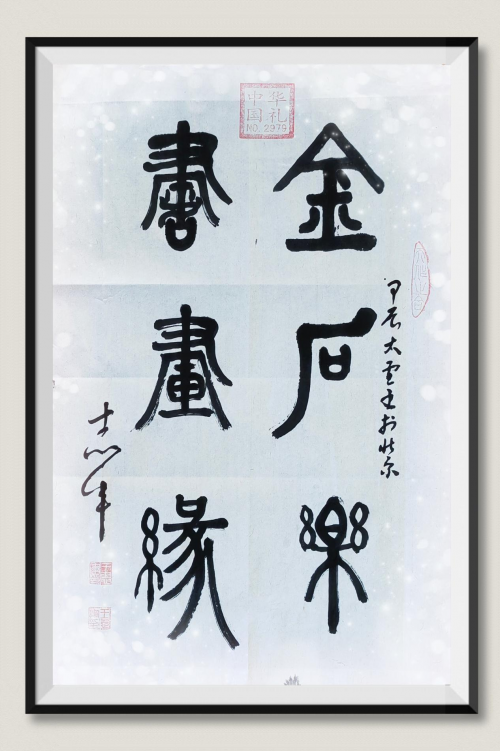 中华
国礼
NO 2979
甲辰大雪於北京
金石樂
書畫緣